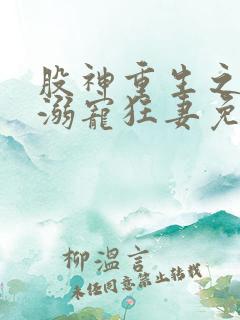 股神重生之
溺宠狂妻免
柳温言
未经同意禁止转载